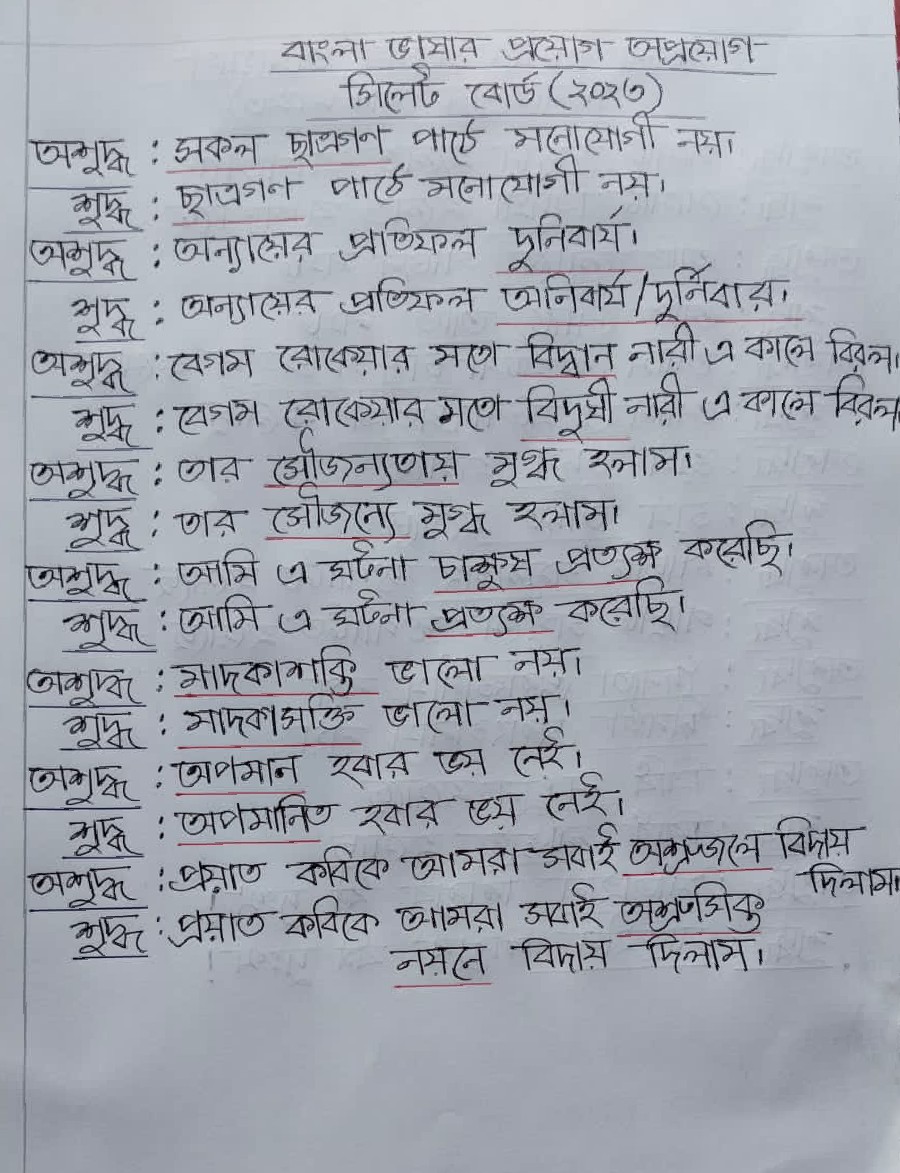 বাংলা ভাষার প্রয়োগ অপপ্রয়োগ
সিলেট বোর্ড (২০২৩)
অশুদ্ধ : সকল ছাত্রগণ পাঠে মনোযোগী নয়।
শুদ্ধ : ছাত্রগণ পাঠে মনোযোগী নয়।
অশুদ্ধ : অন্যায়ের প্রতিফল দুনিবার্য।
শুদ্ধ : অন্যায়ের প্রতিফল অনিবার্য/দুর্নিবার।
অশুদ্ধ : বেগম রোকেয়ার মতো বিদ্বান নারী এ কালে বিরল।
শুদ্ধ : বেগম রোকেয়ার মতো বিদুষী নারী এ কালে বিরল
অশুদ্ধ : তার সৌজন্যতায় মুগ্ধ হলাম।
শুদ্ধ : তার সৌজন্যে মুগ্ধ হলাম।
অশুদ্ধ : আমি এ ঘটনা চাক্ষুষ প্রত্যক্ষ করেছি।
শুদ্ধ : আমি এ ঘটনা প্রত্যক্ষ করেছি।
অশুদ্ধ : মাদকাশক্তি ভালো নয়।
শুদ্ধ : মাদকাসক্তি ভালো নয়।
অশুদ্ধ : অপমান হবার ভয় নেই।
শুদ্ধ : অপমানিত হবার ভয় নেই।
অশুদ্ধ : প্রয়াত কবিকে আমরা সবাই অশ্রুজলে বিদায়
দিলাম।
শুদ্ধ : প্রয়াত কবিকে আমরা সবাই অশ্রুসিক্ত
নয়নে বিদায় দিলাম।